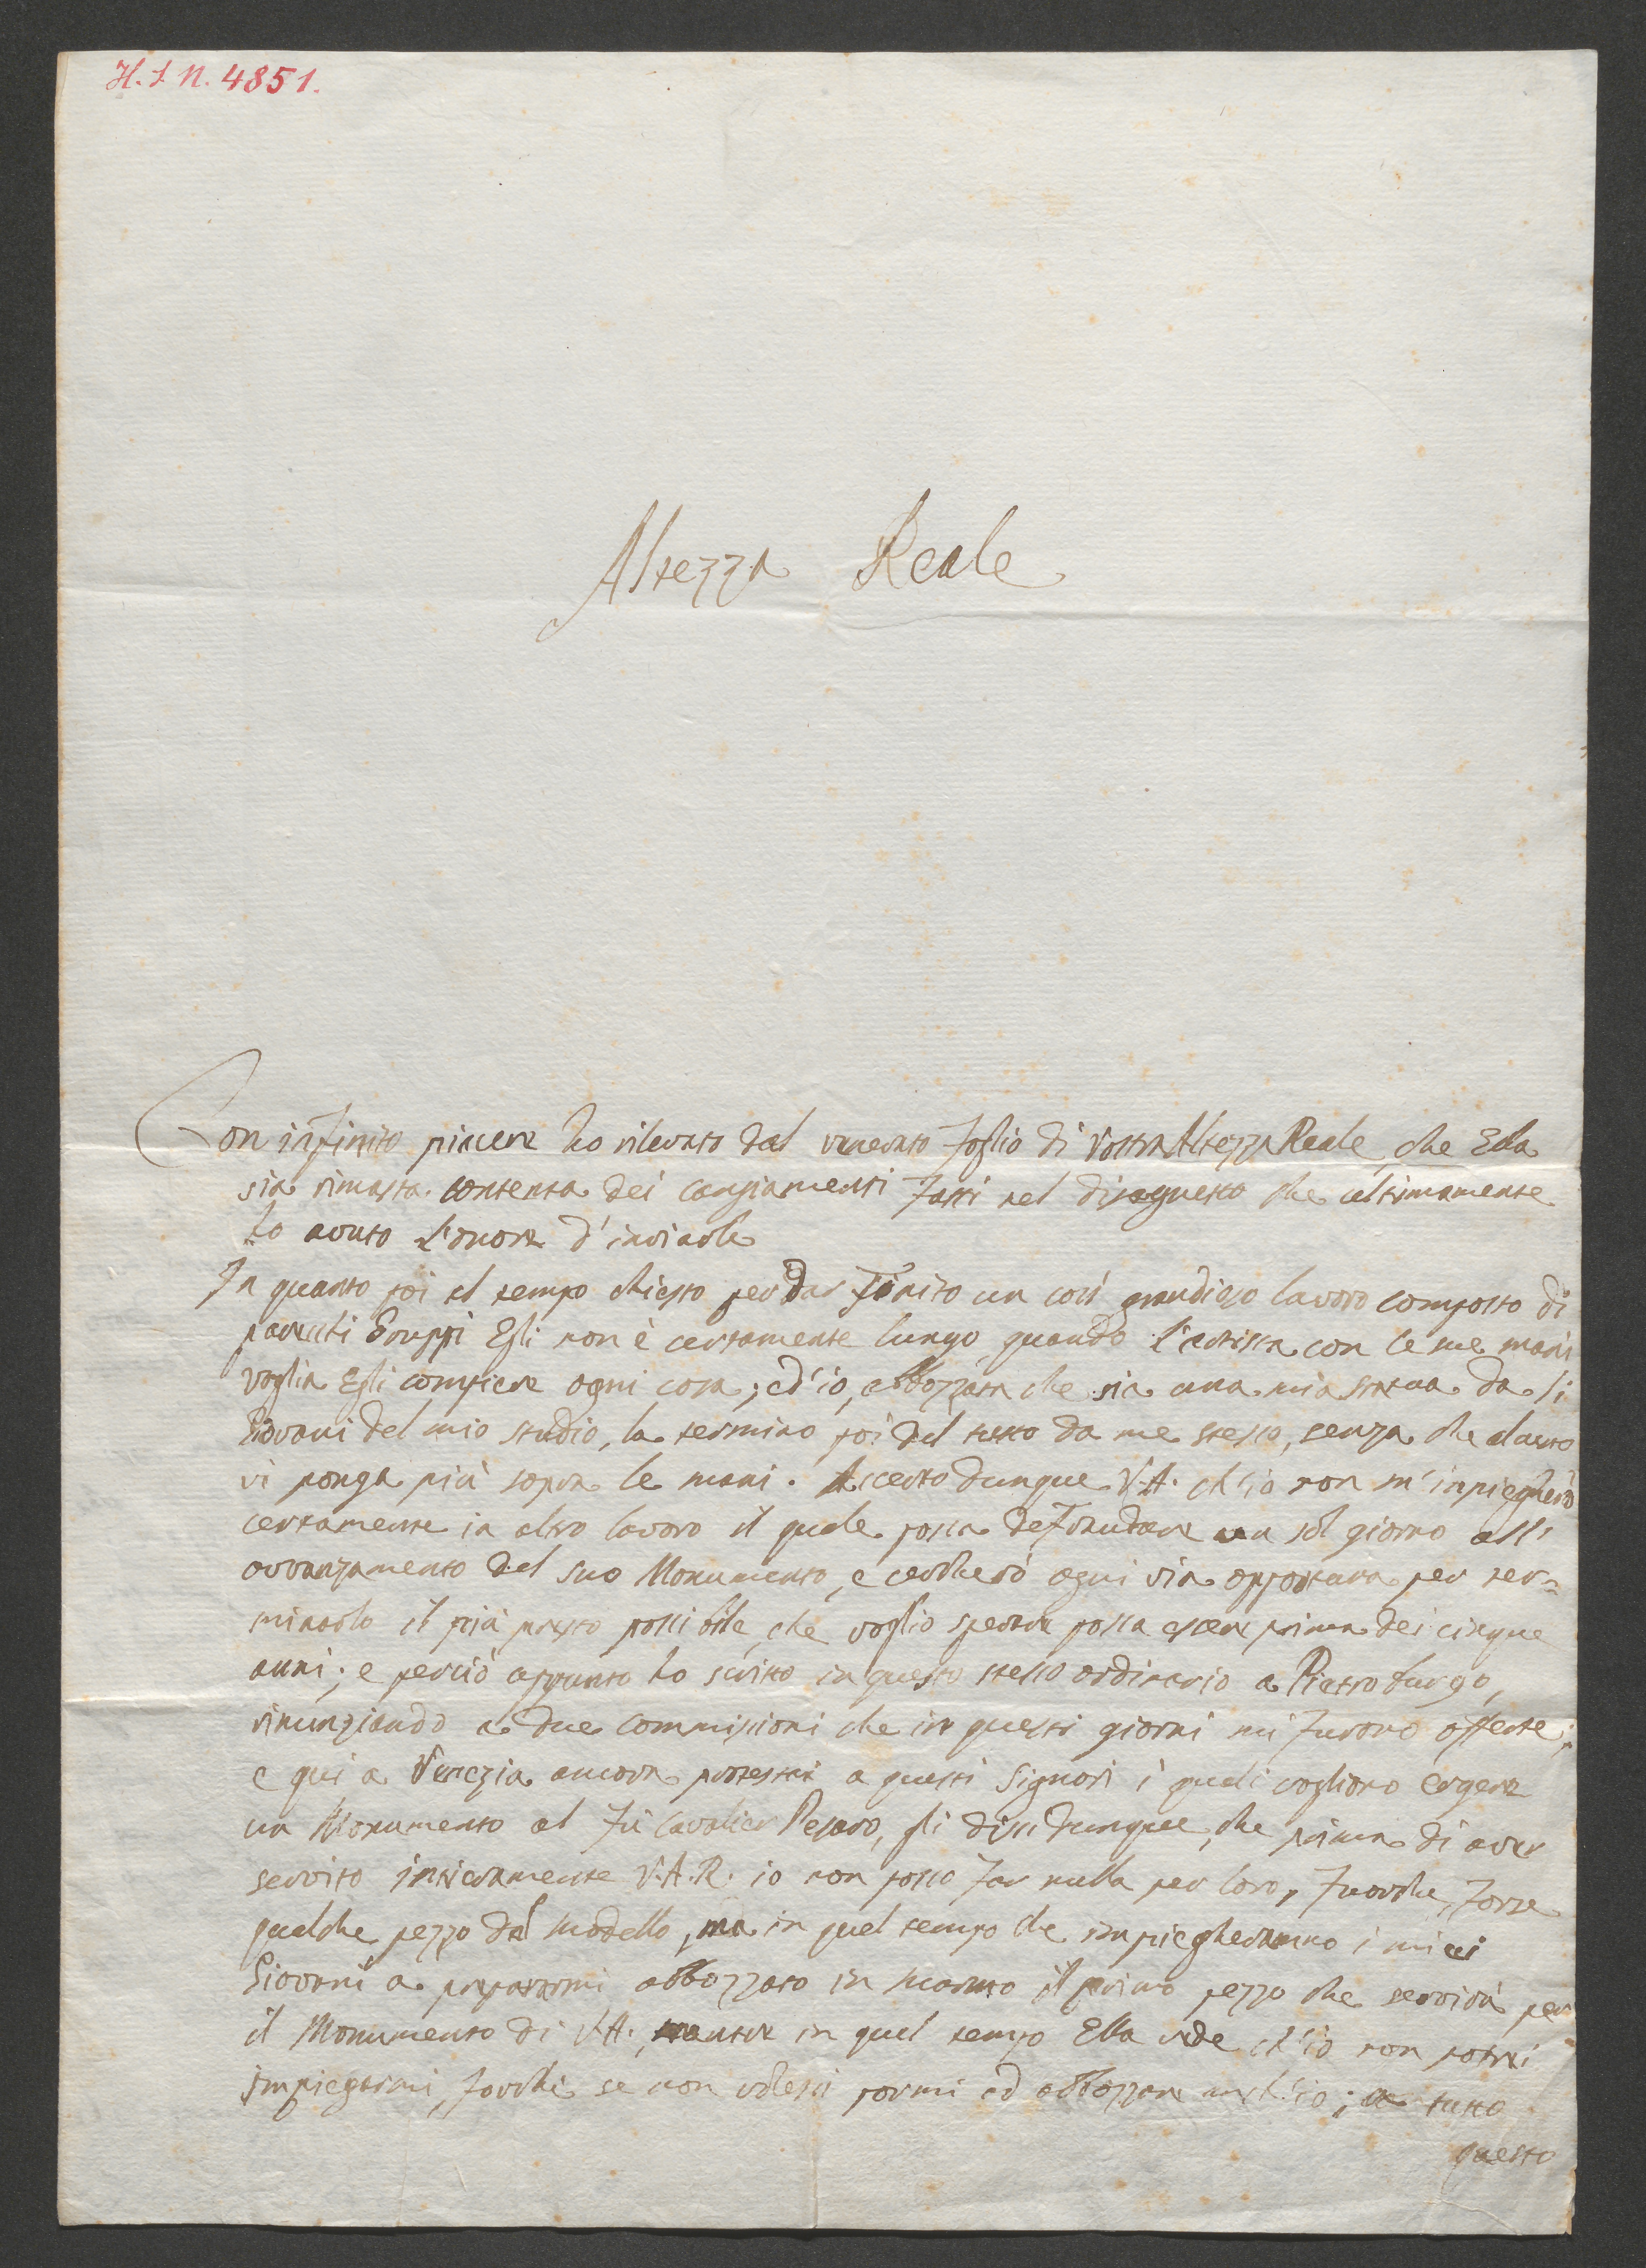 H. I. N. 4851.
Altezza Reale
Con infinito piacere ho rilevato dal venerato foglio di Vostra Altezza Reale, che Ella
sia rimasta contenta dei cangiamenti fatti nel disegnetto che ultimamente
ho avuto l'onore d'inviarle
In quanto poi al tempo chiesto per dar finito un così grandioso lavoro composto di
parecchi Gruppi Egli non è certamente lungo, quando l'artista con le sue mani
voglia Egli compiere ogni cosa; ed'io, abbozzata che sia una mia statua da li
Giovani del mio studio, la termino poi del tutto da me stesso, senza che altro
vi ponga più sopra le mani. Accerto dunque V.A. ch'io non m'inpiegherò
certamente in altro lavoro il quale possa defraudare un sol giorno all'
avvanzamento del suo Monumento, e cercherò ogni via opportuna per ter=
minarlo il più presto possibile, che voglio sperare possa essere prima dei cinque
anni; e perciò appunto ho scritto in questo stesso ordinario a Pietroburgo,
rinunziando a due commissioni che in questi giorni mi furono offerte;
e qui a Venezia ancora protestai a questi Signori i quali vogliono ergere
un Monumento al fù Cavalier Pesaro, gli dissi dunque, che prima di aver
servito intieramente V.A.R. io non posso far nulla per loro, fuorche, forze
qualche pezzo del modello, ma in quel tempo che impiegheranno i miei
Giovani a prepararmi abbozzato in marmo il primo pezzo che servirà per
il Monumento di V.A., mentre in quel tempo Ella vede ch'io non potrei
impiegarmi, forchè se non volessi pormi ad abbozzare anch'io; a tutto
questo